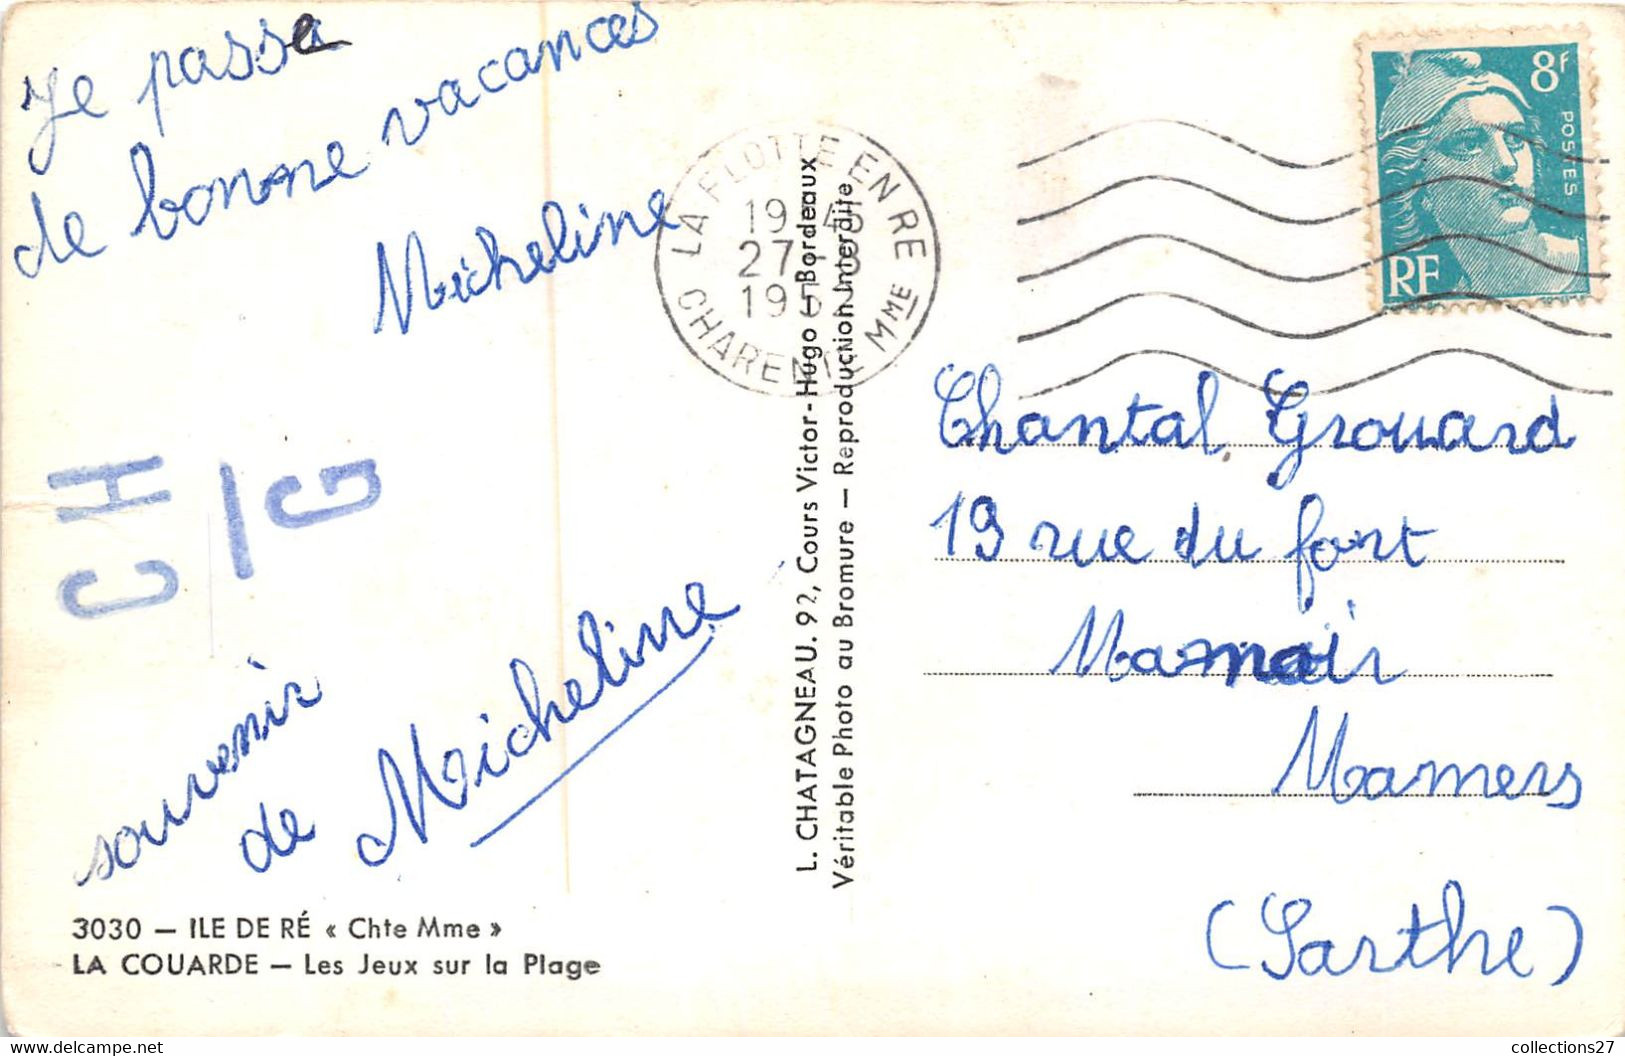 Je passe
de bonne vacances
Micheline
CH
G
souvenir
de Micheline
3030 — ILE DE RÉ « Chte Mme »
LA COUARDE — Les Jeux sur la Plage
L. CHATAGNEAU. 92, Cours Victor-Hugo — Bordeaux
Véritable Photo au Bromure — Reproduction Interdite
LA FLOTTE EN RE
27-8
CHARENTE MME
8F
POSTES
RF
Chantal Grouard
19 rue du fort
Mamers
(Sarthe)
collections27